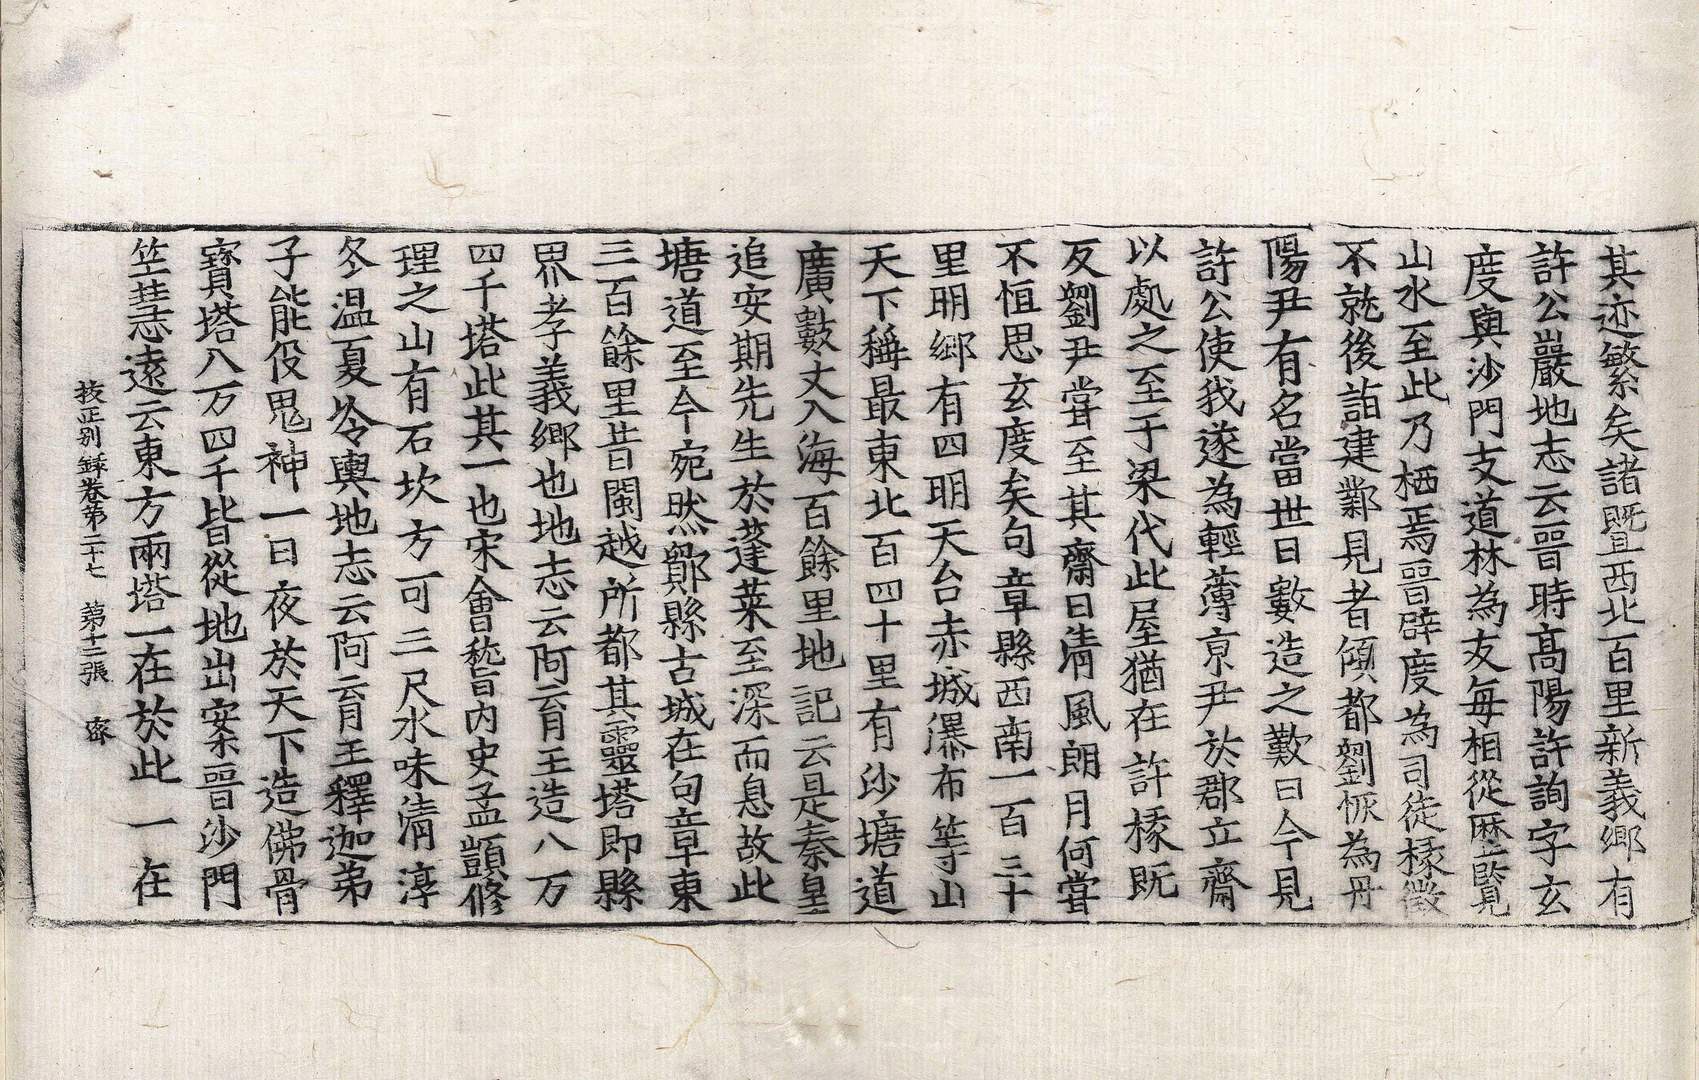 其迹繁矣諸暨西北一百里新義鄉有
許公巖地志云晉時高陽許詢字玄
度與沙門支道林為友每相從歷覽
山水至此乃栖焉晉辟度為司徒椽徵
不就後詣建鄴見者傾都劉恢為丹
陽尹有名當世日數造之歎曰今見
許公使我遂為輕薄京尹於郡立齋
以處之至于梁代此屋猶在許椽既
反劉尹甞至其齋曰清風朗月何甞
不恒思玄度矣句章縣西南一百三十
里明鄉有四明天台赤城瀑布等山
天下稱最東北百四十里有沙塘道
廣數丈入海百餘里地記云是秦皇
追安期先生於蓬萊至深而息故此
塘道至今宛然鄮縣古城在句章東
三百餘里昔閩越所都其靈塔即縣
界孝義鄉也地志云阿育王造八万
四千塔此其一也宋會稽內史孟顗修
理之山有石坎方可三尺水味清淳
冬温夏冷輿地志云阿育王釋迦弟
子能伇鬼神一日夜於天下造佛骨
寶塔八万四千皆從地出案晉沙門
竺慧遠云東方兩塔一在於此一在
挍正別錄卷第二十七 第十二張 密